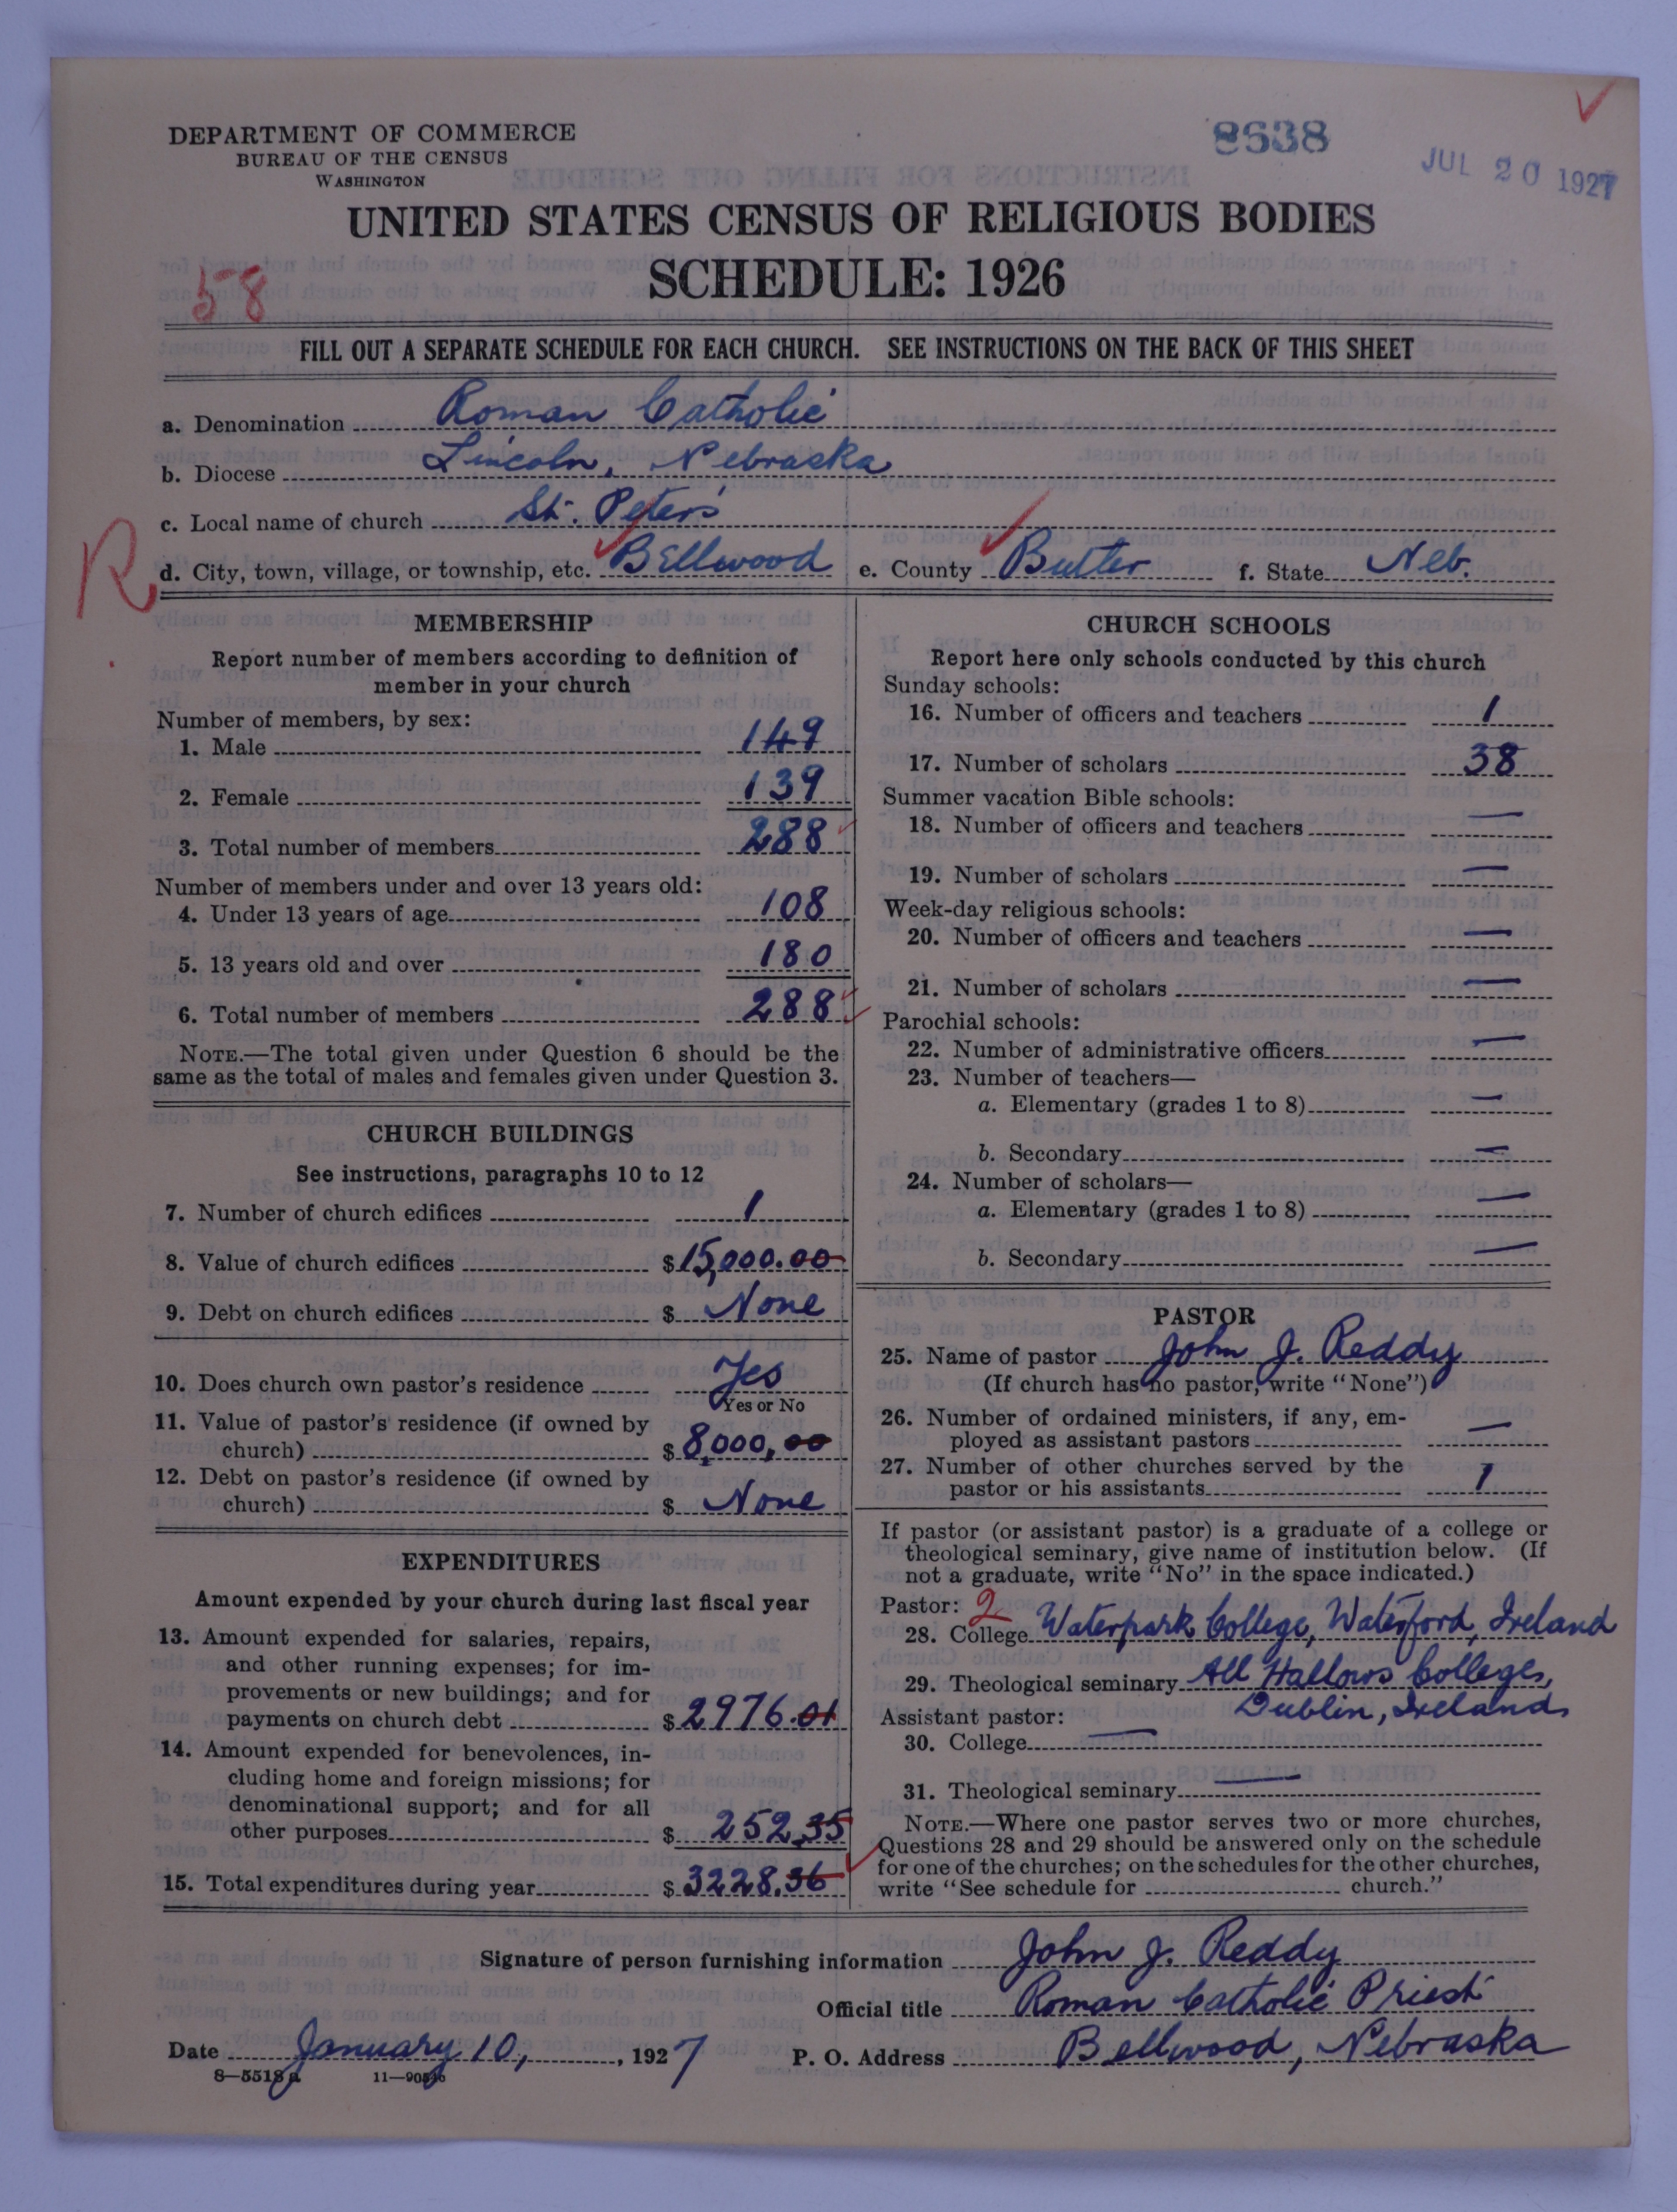 DEPARTMENT OF COMMERCE
BUREAU OF THE CENSUS
WASHINGTON
8638
JUL 20 1927
UNITED STATES CENSUS OF RELIGIOUS BODIES
SCHEDULE: 1926
58
FILL OUT A SEPARATE SCHEDULE FOR EACH CHURCH. SEE INSTRUCTIONS ON THE BACK OF THIS SHEET
a. Denomination Roman Catholic
b. Diocese Lincoln, Nebraska
c. Local name of church St. Peter's
R
d. City, town, village, or township, etc. Bellwood e. County Butler f. State Neb.
MEMBERSHIP
Report number of members according to definition of
member in your church
Number of members, by sex:
1. Male 149
2. Female 139
3. Total number of members 288
Number of members under and over 13 years old:
4. Under 13 years of age 108
5. 13 years old and over 180
6. Total number of members 288
NOTE.—The total given under Question 6 should be the
same as the total of males and females given under Question 3.
CHURCH BUILDINGS
See instructions, paragraphs 10 to 12
7. Number of church edifices 1
8. Value of church edifices $15,000.00
9. Debt on church edifices $ None
10. Does church own pastor's residence Yes
Yes or No
11. Value of pastor's residence (if owned by
church) $8,000,00
12. Debt on pastor's residence (if owned by
church) $ None
EXPENDITURES
Amount expended by your church during last fiscal year
13. Amount expended for salaries, repairs,
and other running expenses; for im-
provements or new buildings; and for
payments on church debt $2976.01
14. Amount expended for benevolences, in-
cluding home and foreign missions; for
denominational support; and for all
other purposes $ 252.35
15. Total expenditures during year $3228.36
CHURCH SCHOOLS
Report here only schools conducted by this church
Sunday schools:
16. Number of officers and teachers 1
17. Number of scholars 38
Summer vacation Bible schools:
18. Number of officers and teachers —
19. Number of scholars —
Week-day religious schools:
20. Number of officers and teachers —
21. Number of scholars —
Parochial schools:
22. Number of administrative officers —
23. Number of teachers—
a. Elementary (grades 1 to 8) —
b. Secondary —
24. Number of scholars—
a. Elementary (grades 1 to 8) —
b. Secondary —
PASTOR
25. Name of pastor John J. Reddy
(If church has no pastor, write "None")
26. Number of ordained ministers, if any, em-
ployed as assistant pastors —
27. Number of other churches served by the
pastor or his assistants 1
If pastor (or assistant pastor) is a graduate of a college or
theological seminary, give name of institution below. (If
not a graduate, write "No" in the space indicated.)
Pastor: 2
28. College Waterpark College, Waterford, Ireland
29. Theological seminary All Hallows College,
Dublin, Ireland
Assistant pastor:
30. College —
31. Theological seminary —
NOTE.—Where one pastor serves two or more churches,
Questions 28 and 29 should be answered only on the schedule
for one of the churches; on the schedules for the other churches,
write "See schedule for church."
Signature of person furnishing information John J. Reddy
Official title Roman Catholic Priest
Date January 10, 1927 P. O. Address Bellwood, Nebraska
8—5518a 11—90546